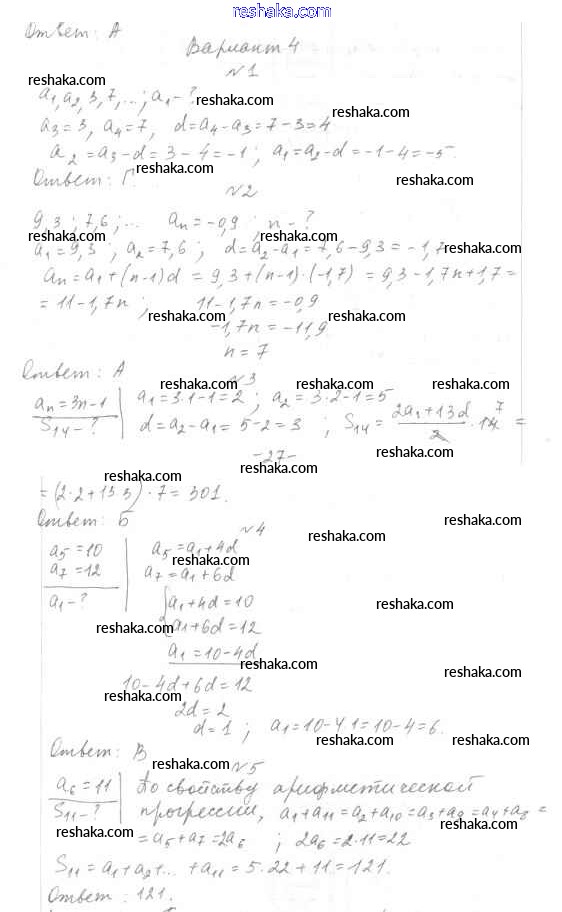 reshaka.com
Ответ: А
Вариант 4
№1
reshaka.com
a₁, a₂, 3, 7, ...; a₁ - ? reshaka.com
a₃ = 3, a₄ = 7, d = a₄ - a₃ = 7 - 3 = 4 reshaka.com
a₂ = a₃ - d = 3 - 4 = -1; a₁ = a₂ - d = -1 - 4 = -5.
Ответ: Г. reshaka.com reshaka.com
№2
9,3; 7,6; ... aₙ = -0,9; n - ?
reshaka.com reshaka.com reshaka.com
a₁ = 9,3; a₂ = 7,6; d = a₂ - a₁ = 7,6 - 9,3 = -1,7 reshaka.com
aₙ = a₁ + (n-1)d = 9,3 + (n-1)·(-1,7) = 9,3 - 1,7n + 1,7 =
= 11 - 1,7n; 11 - 1,7n = -0,9
reshaka.com reshaka.com
-1,7n = -11,9
n = 7
Ответ: А
№3
reshaka.com reshaka.com reshaka.com
aₙ = 3n - 1 a₁ = 3·1 - 1 = 2; a₂ = 3·2 - 1 = 5
S₁₄ - ? d = a₂ - a₁ = 5 - 2 = 3; S₁₄ = (2a₁ + 13d)/2 · 14 7 =
reshaka.com reshaka.com reshaka.com
-27-
reshaka.com
= (2·2 + 13·3)·7 = 301.
reshaka.com
Ответ: Б reshaka.com
№4
reshaka.com
a₅ = 10 a₅ = a₁ + 4d
reshaka.com
a₇ = 12 a₇ = a₁ + 6d
a₁ - ? {a₁ + 4d = 10 reshaka.com
reshaka.com a₁ + 6d = 12
a₁ = 10 - 4d reshaka.com
reshaka.com
10 - 4d + 6d = 12
reshaka.com
2d = 2
d = 1; a₁ = 10 - 4·1 = 10 - 4 = 6.
reshaka.com reshaka.com
Ответ: В
reshaka.com №5
a₆ = 11 По свойству арифметической
S₁₁ - ? прогрессии, a₁ + a₁₁ = a₂ + a₁₀ = a₃ + a₉ = a₄ + a₈ =
reshaka.com reshaka.com
= a₅ + a₇ = 2a₆; 2a₆ = 2·11 = 22
S₁₁ = a₁ + a₂ + ... + a₁₁ = 5·22 + 11 = 121.
Ответ: 121.